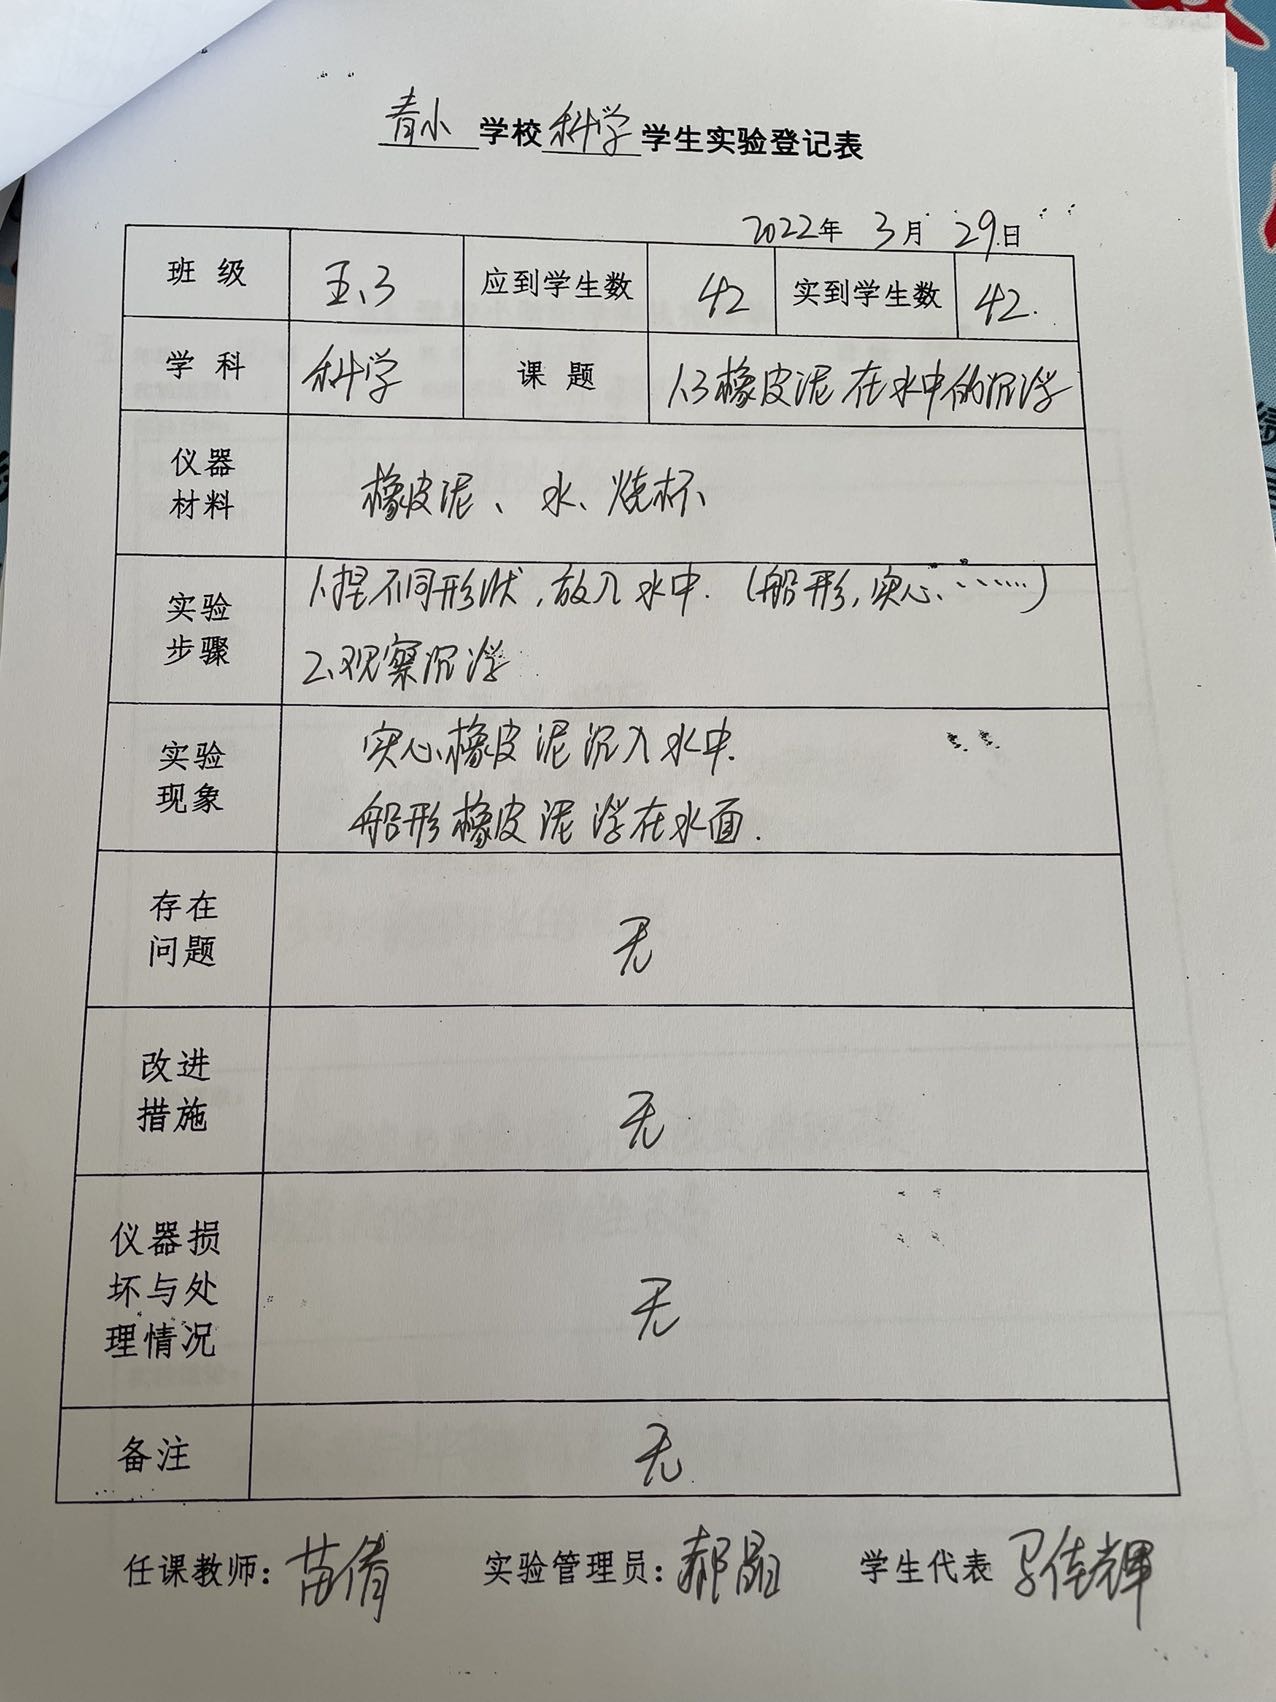 青小 学校 科学 学生实验登记表
2022年 3月 29日
班级 五.3 应到学生数 42 实到学生数 42.
学科 科学 课题 1.3橡皮泥在水中的沉浮
仪器
材料
橡皮泥、水、烧杯、
实验
步骤
1.捏不同形状,放入水中.(船形,实心、……)
2.观察沉浮
实验
现象
实心橡皮泥沉入水中.
船形橡皮泥浮在水面.
存在
问题
无
改进
措施
无
仪器损
坏与处
理情况
无
备注 无
任课教师:苗倩 实验管理员:郝晶 学生代表 佳辉